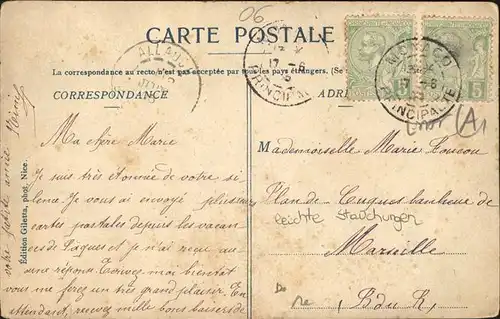 06
CARTE POSTALE
La correspondance au recto n'est pas acceptée par tous les pays étrangers. (Se
CORRESPONDANCE
ADR
MONACO
PRINCIPAUTE
5
5
Ma chère Marie
Je suis très étonnée de votre si
lence. Je vous ai envoyé plusieurs
cartes postales depuis les vacan
ces de Pâques et je n'ai reçu au
une réponse. Ecrivez moi bientôt
vous me ferez un très grand plaisir. En
attendant, recevez mille bons baisers de
votre petite amie
Edition Giletta, phot. Nice.
Mademoiselle Marie
Plan de Cuques banlieue de
leichte Stauchungen
Marseille
B du R